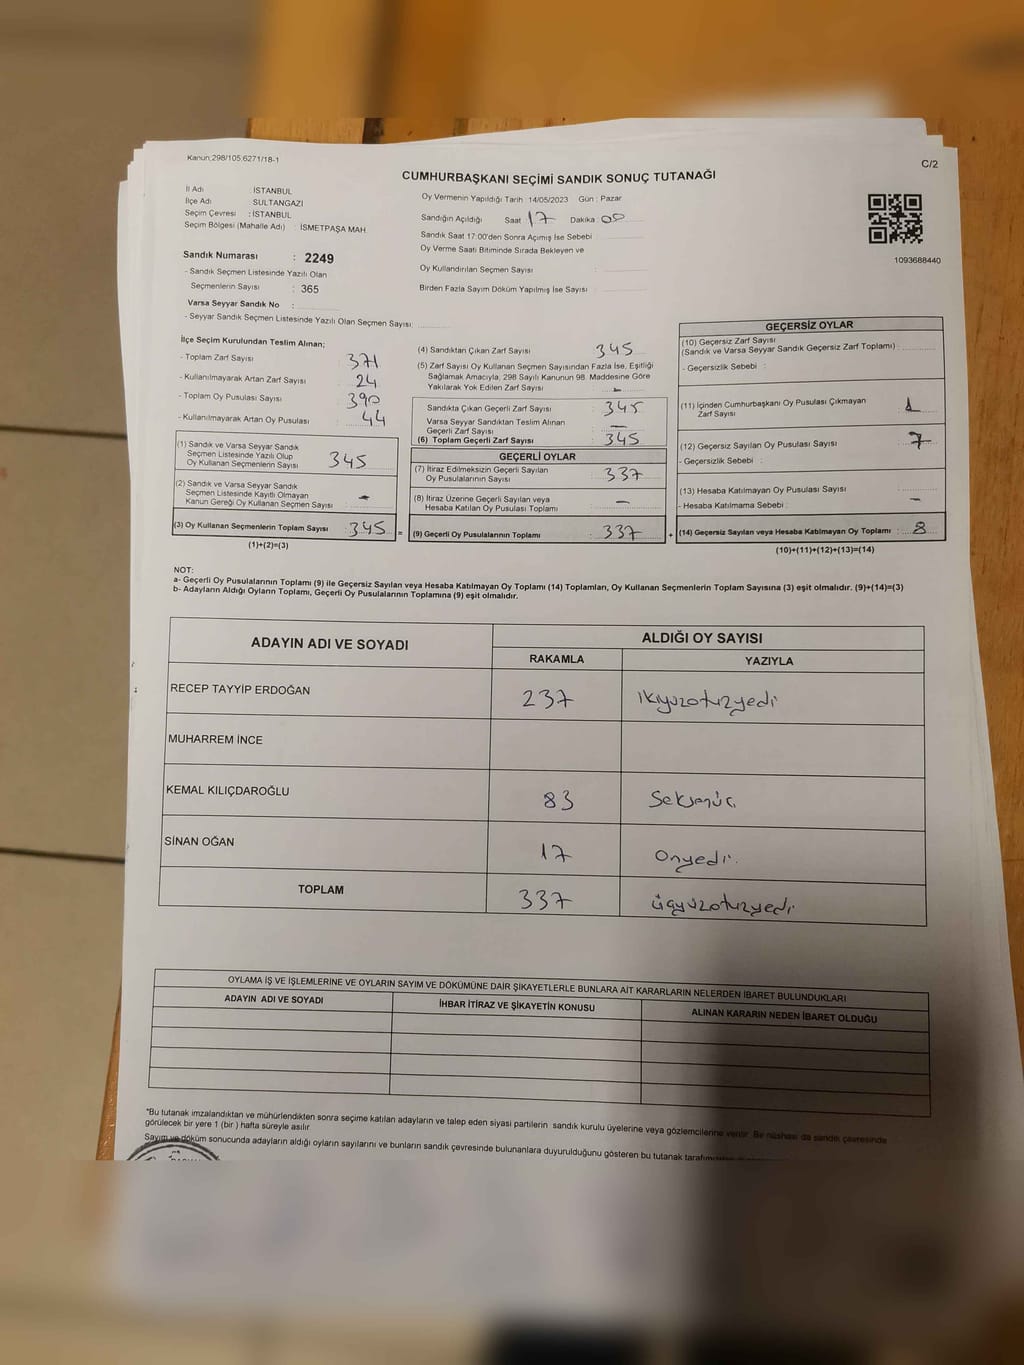 Kanun;298/105,6271/18-1
C/2
CUMHURBAŞKANI SEÇİMİ SANDIK SONUÇ TUTANAĞI
İl Adı : İSTANBUL
İlçe Adı : SULTANGAZİ
Seçim Çevresi : İSTANBUL
Seçim Bölgesi (Mahalle Adı) : İSMETPAŞA MAH
Sandık Numarası : 2249
- Sandık Seçmen Listesinde Yazılı Olan
Seçmenlerin Sayısı : 365
Varsa Seyyar Sandık No :
- Seyyar Sandık Seçmen Listesinde Yazılı Olan Seçmen Sayısı:
Oy Vermenin Yapıldığı Tarih : 14/05/2023 Gün : Pazar
Sandığın Açıldığı Saat : 17 Dakika : 00
Sandık Saat 17:00'den Sonra Açımış İse Sebebi
Oy Verme Saati Bitiminde Sırada Bekleyen ve
Oy Kullandırılan Seçmen Sayısı :
Birden Fazla Sayım Döküm Yapılmış İse Sayısı :
1093688440
İlçe Seçim Kurulundan Teslim Alınan;
- Toplam Zarf Sayısı : 371
- Kullanılmayarak Artan Zarf Sayısı : 24
- Toplam Oy Pusulası Sayısı : 390
- Kullanılmayarak Artan Oy Pusulası : 44
(1) Sandık ve Varsa Seyyar Sandık
Seçmen Listesinde Yazılı Olup
Oy Kullanan Seçmenlerin Sayısı : 345
(2) Sandık ve Varsa Seyyar Sandık
Seçmen Listesinde Kayıtlı Olmayan
Kanun Gereği Oy Kullanan Seçmen Sayısı : -
(3) Oy Kullanan Seçmenlerin Toplam Sayısı : 345 =
(1)+(2)=(3)
(4) Sandıktan Çıkan Zarf Sayısı : 345
(5) Zarf Sayısı Oy Kullanan Seçmen Sayısından Fazla İse, Eşitliği
Sağlamak Amacıyla, 298 Sayılı Kanunun 98. Maddesine Göre
Yakılarak Yok Edilen Zarf Sayısı : -
Sandıkta Çıkan Geçerli Zarf Sayısı : 345
Varsa Seyyar Sandıktan Teslim Alınan
Geçerli Zarf Sayısı : -
(6) Toplam Geçerli Zarf Sayısı : 345
GEÇERLİ OYLAR
(7) İtiraz Edilmeksizin Geçerli Sayılan
Oy Pusulalarının Sayısı : 337
(8) İtiraz Üzerine Geçerli Sayılan veya
Hesaba Katılan Oy Pusulası Toplamı : -
(9) Geçerli Oy Pusulalarının Toplamı : 337 +
GEÇERSİZ OYLAR
(10) Geçersiz Zarf Sayısı
(Sandık ve Varsa Seyyar Sandık Geçersiz Zarf Toplamı) :
- Geçersizlik Sebebi :
(11) İçinden Cumhurbaşkanı Oy Pusulası Çıkmayan
Zarf Sayısı : 1
(12) Geçersiz Sayılan Oy Pusulası Sayısı : 7
- Geçersizlik Sebebi :
(13) Hesaba Katılmayan Oy Pusulası Sayısı : -
- Hesaba Katılmama Sebebi :
(14) Geçersiz Sayılan veya Hesaba Katılmayan Oy Toplamı : 8
(10)+(11)+(12)+(13)=(14)
NOT:
a- Geçerli Oy Pusulalarının Toplamı (9) ile Geçersiz Sayılan veya Hesaba Katılmayan Oy Toplamı (14) Toplamları, Oy Kullanan Seçmenlerin Toplam Sayısına (3) eşit olmalıdır. (9)+(14)=(3)
b- Adayların Aldığı Oyların Toplamı, Geçerli Oy Pusulalarının Toplamına (9) eşit olmalıdır.
ADAYIN ADI VE SOYADI
ALDIĞI OY SAYISI
RAKAMLA YAZIYLA
RECEP TAYYİP ERDOĞAN 237 ikiyüzotuzyedi
MUHARREM İNCE
KEMAL KILIÇDAROĞLU 83 Seksenüç
SİNAN OĞAN 17 Onyedi.
TOPLAM 337 üçyüzotuzyedi
OYLAMA İŞ VE İŞLEMLERİNE VE OYLARIN SAYIM VE DÖKÜMÜNE DAİR ŞİKAYETLERLE BUNLARA AİT KARARLARIN NELERDEN İBARET BULUNDUKLARI
ADAYIN ADI VE SOYADI İHBAR İTİRAZ VE ŞİKAYETİN KONUSU ALINAN KARARIN NEDEN İBARET OLDUĞU
*Bu tutanak imzalandıktan ve mühürlendikten sonra seçime katılan adayların ve talep eden siyasi partilerin sandık kurulu üyelerine veya gözlemcilerine verilir. Bir nüshası da sandık çevresinde
görülecek bir yere 1 (bir ) hafta süreyle asılır
Sayım ve döküm sonucunda adayların aldığı oyların sayılarını ve bunların sandık çevresinde bulunanlara duyurulduğunu gösteren bu tutanak